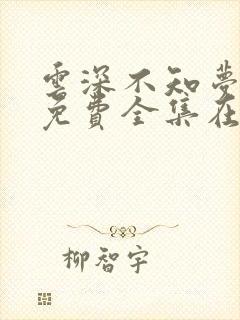 雲深不知夢
免費全集在
柳智宇